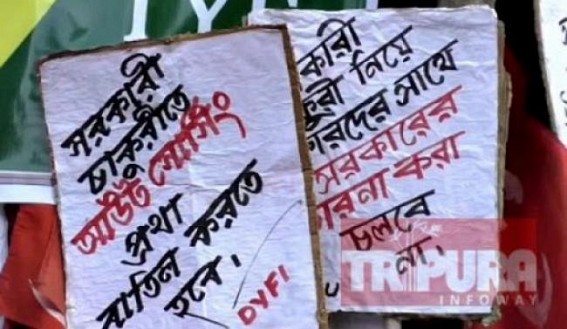 সরকারী
চাকুরীতে
আউট সোর্সিং
প্রথা
বাতিল করতে
হবে।
DYFI
নিয়ে
সাথে
সরকারের
করা
চলবে
না।
TRIPURA
INFOWAY